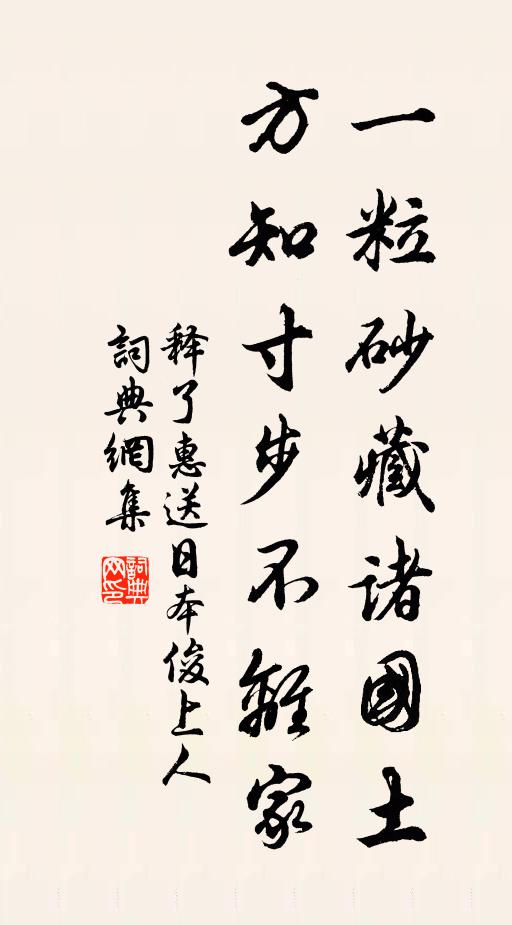 一粒砂藏諸國土
方知寸步不離家
释了惠送日本俊上人
詞典網集
詞典网印